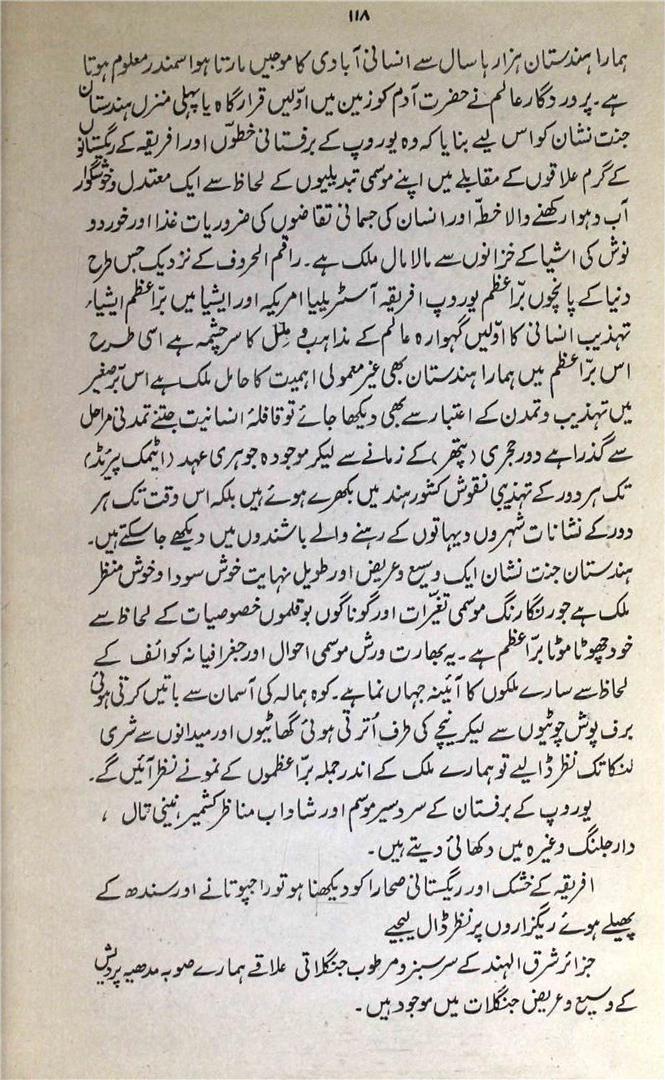 ۱۱۸
ہمارا ہندستان ہزارہا سال سے انسانی آبادی کا موجیں مارتا ہوا سمندر معلوم ہوتا
ہے۔ پروردگار عالم نے حضرت آدم کو زمین میں اوّلیں قرار گاہ یا پہلی منزل ہندستان
جنت نشان کو اس لیے بنایا کہ وہ یوروپ کے برفستانی خطّوں اور افریقہ کے ریگستانوں
کے گرم علاقوں کے مقابلے میں اپنے موسمی تبدیلیوں کے لحاظ سے ایک معتدل و خوشگوار
آب و ہوا رکھنے والا خطّہ اور انسان کی جسمانی تقاضوں کی ضروریات غذا اور خورد و
نوش کی اشیا کے خزانوں سے مالا مال ملک ہے۔ راقم الحروف کے نزدیک جس طرح
دنیا کے پانچوں برّاعظم یوروپ افریقہ آسٹریلیا امریکہ اور ایشیا میں برّاعظم ایشیاء
تہذیب انسانی کا اوّلیں گہوارہ عالم کے مذاہب و مِلل کا سرچشمہ ہے اسی طرح
اس برّاعظم میں ہمارا ہندستان بھی غیر معمولی اہمیت کا حامل ملک ہے اس برّصغیر
میں تہذیب و تمدن کے اعتبار سے بھی دیکھا جائے تو قافلۂ انسانیت جتنے تمدنی مراحل
سے گذرا ہے دور حجری (پتھر) کے زمانے سے لیکر موجودہ جوہری عہد (اٹیمک پیریڈ)
تک ہر دور کے تہذیبی نقوش کشور ہند میں بکھرے ہوئے ہیں بلکہ اس وقت تک ہر
دور کے نشانات شہروں دیہاتوں کے رہنے والے باشندوں میں دیکھے جا سکتے ہیں۔
ہندستان جنت نشان ایک وسیع و عریض اور طویل نہایت خوش سودا و خوش منظر
ملک ہے جو رنگارنگ موسمی تغیّرات اور گوناگوں بوقلموں خصوصیات کے لحاظ سے
خود چھوٹا موٹا برّاعظم ہے۔ یہ بھارت ورش موسمی احوال اور جغرافیانہ کوائف کے
لحاظ سے سارے ملکوں کا آئینہ جہاں نما ہے۔ کوہ ہمالہ کی آسمان سے باتیں کرتی ہوئی
برف پوش چوٹیوں سے لیکر نیچے کی طرف اُترتی ہوئی گھاٹیوں اور میدانوں سے شری
لنکا تک نظر ڈالیے تو ہمارے ملک کے اندر جملہ برّاعظموں کے نمونے نظر آئیں گے۔
یوروپ کے برفستان کے سرد سیر موسم اور شاداب مناظر کشمیر، نینی تال ،
دارجلنگ وغیرہ میں دکھائی دیتے ہیں۔
افریقہ کے خشک اور ریگستانی صحارا کو دیکھنا ہو تو راجپوتانے اور سندھ کے
پھیلے ہوئے ریگزاروں پر نظر ڈال لیجیے
جزائر شرق الہند کے سرسبز و مرطوب جنگلاتی علاقے ہمارے صوبہ مدھیہ پردیش
کے وسیع و عریض جنگلات میں موجود ہیں۔